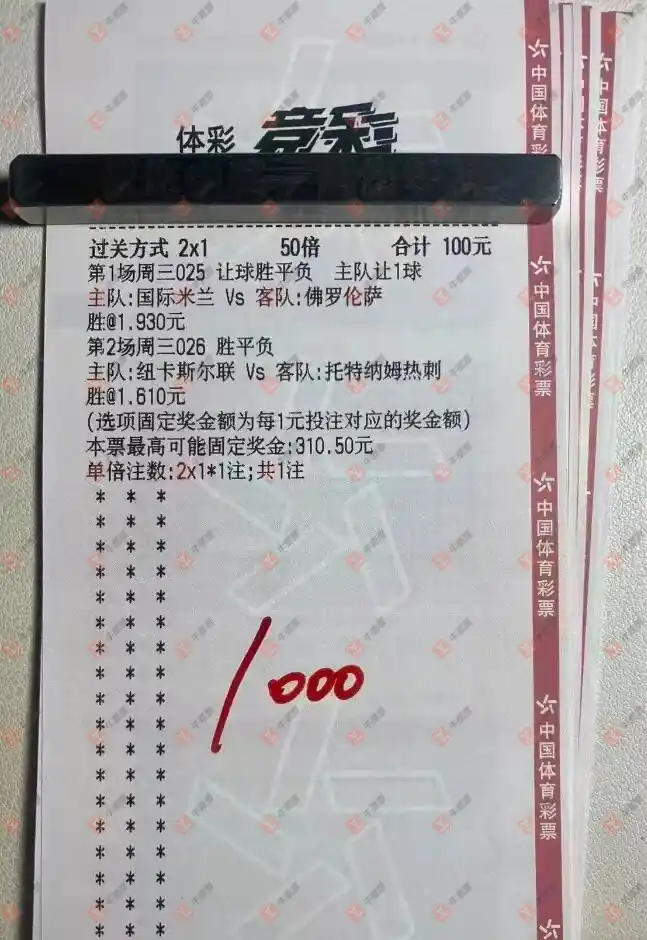 体彩 竞彩
过关方式 2x1 50倍 合计 100元
第1场周三025 让球胜平负 主队让1球
主队:国际米兰 Vs 客队:佛罗伦萨
胜@1.930元
第2场周三026 胜平负
主队:纽卡斯尔联 Vs 客队:托特纳姆热刺
胜@1.610元
(选项固定奖金额为每1元投注对应的奖金额)
本票最高可能固定奖金:310.50元
单倍注数:2x1*1注;共1注
* * *
* * *
* * *
* * *
* * *
* * *
* * *
* * *
* * *
* * *
* * *
* * *
* * *
* * *
* * *
* * *
* * *
* * *
1000
中国体育彩
中国体育彩票
中国体育彩票
中国体育彩票